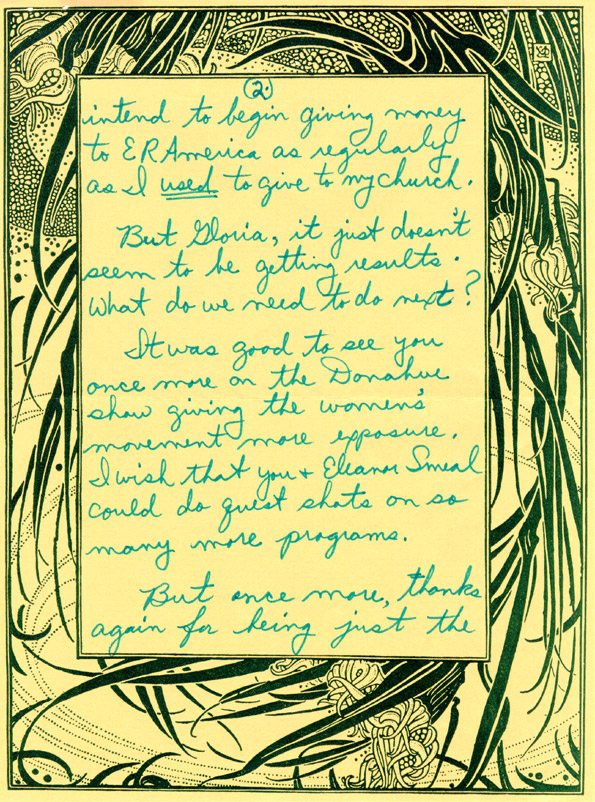 (2.)
intend to begin giving money
to ERAmerica as regularly
as I used to give to my church.
But Gloria, it just doesn't
seem to be getting results.
What do we need to do next?
It was good to see you
once more on the Donahue
show giving the women's
movement more exposure.
I wish that you + Eleanor Smeal
could do guest shots on so
many more programs.
But once more, thanks
again for being just the